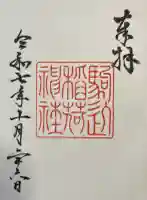 奉拝
駒込
稲荷
神社
令和七年十一月二十六日